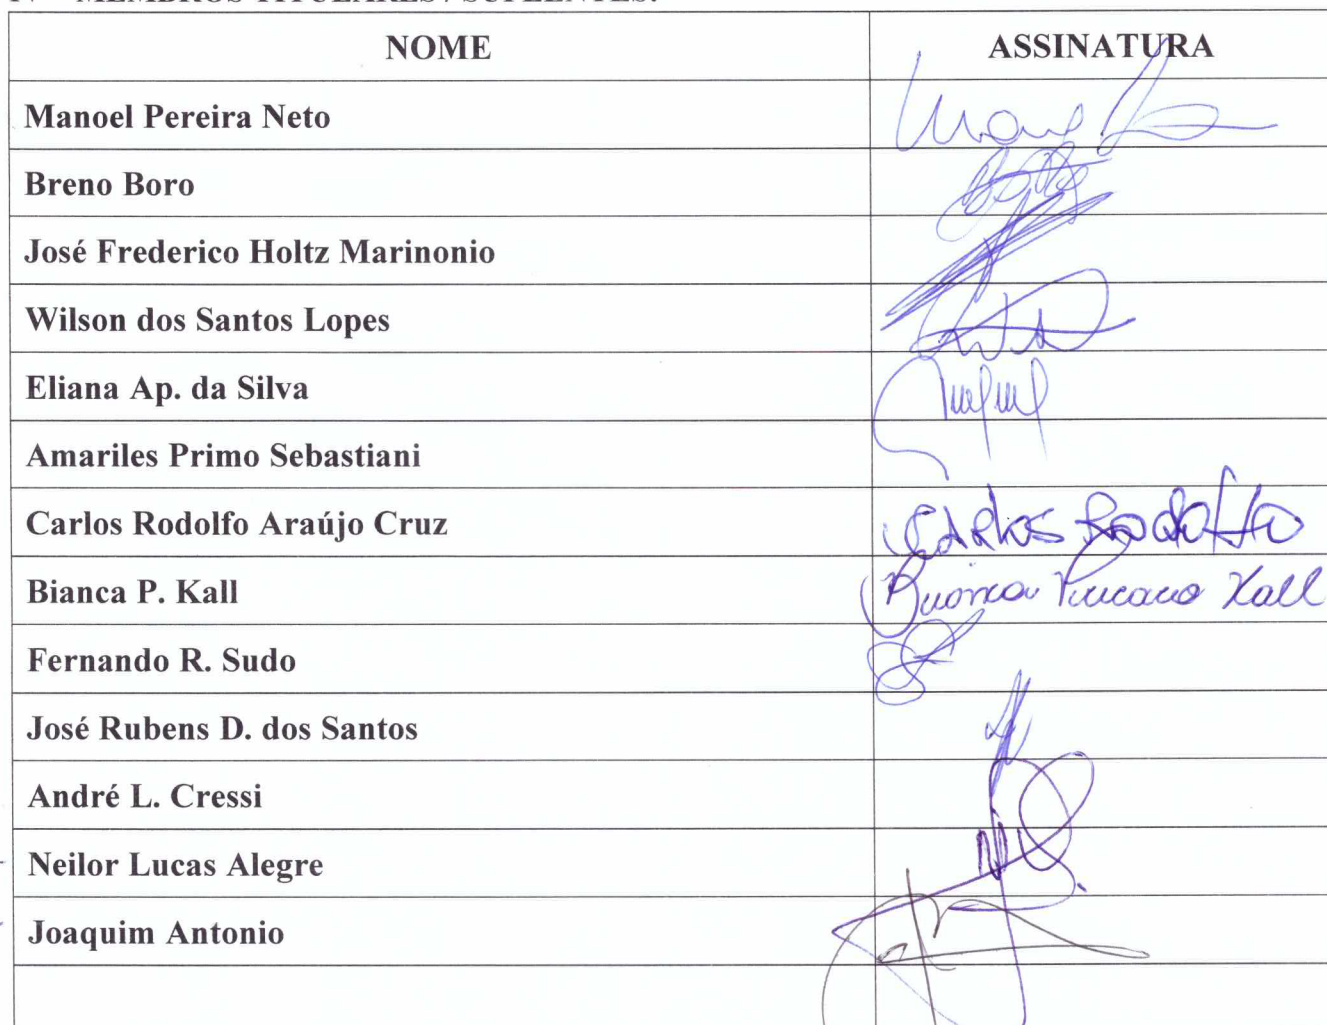 IV – MEMBROS TITULARES / SUPLENTES:
NOME ASSINATURA
Manoel Pereira Neto
Breno Boro
José Frederico Holtz Marinonio
Wilson dos Santos Lopes
Eliana Ap. da Silva
Amariles Primo Sebastiani
Carlos Rodolfo Araújo Cruz CARlos Rodolfo
Bianca P. Kall Bianca Kall
Fernando R. Sudo
José Rubens D. dos Santos
André L. Cressi
Neilor Lucas Alegre
Joaquim Antonio